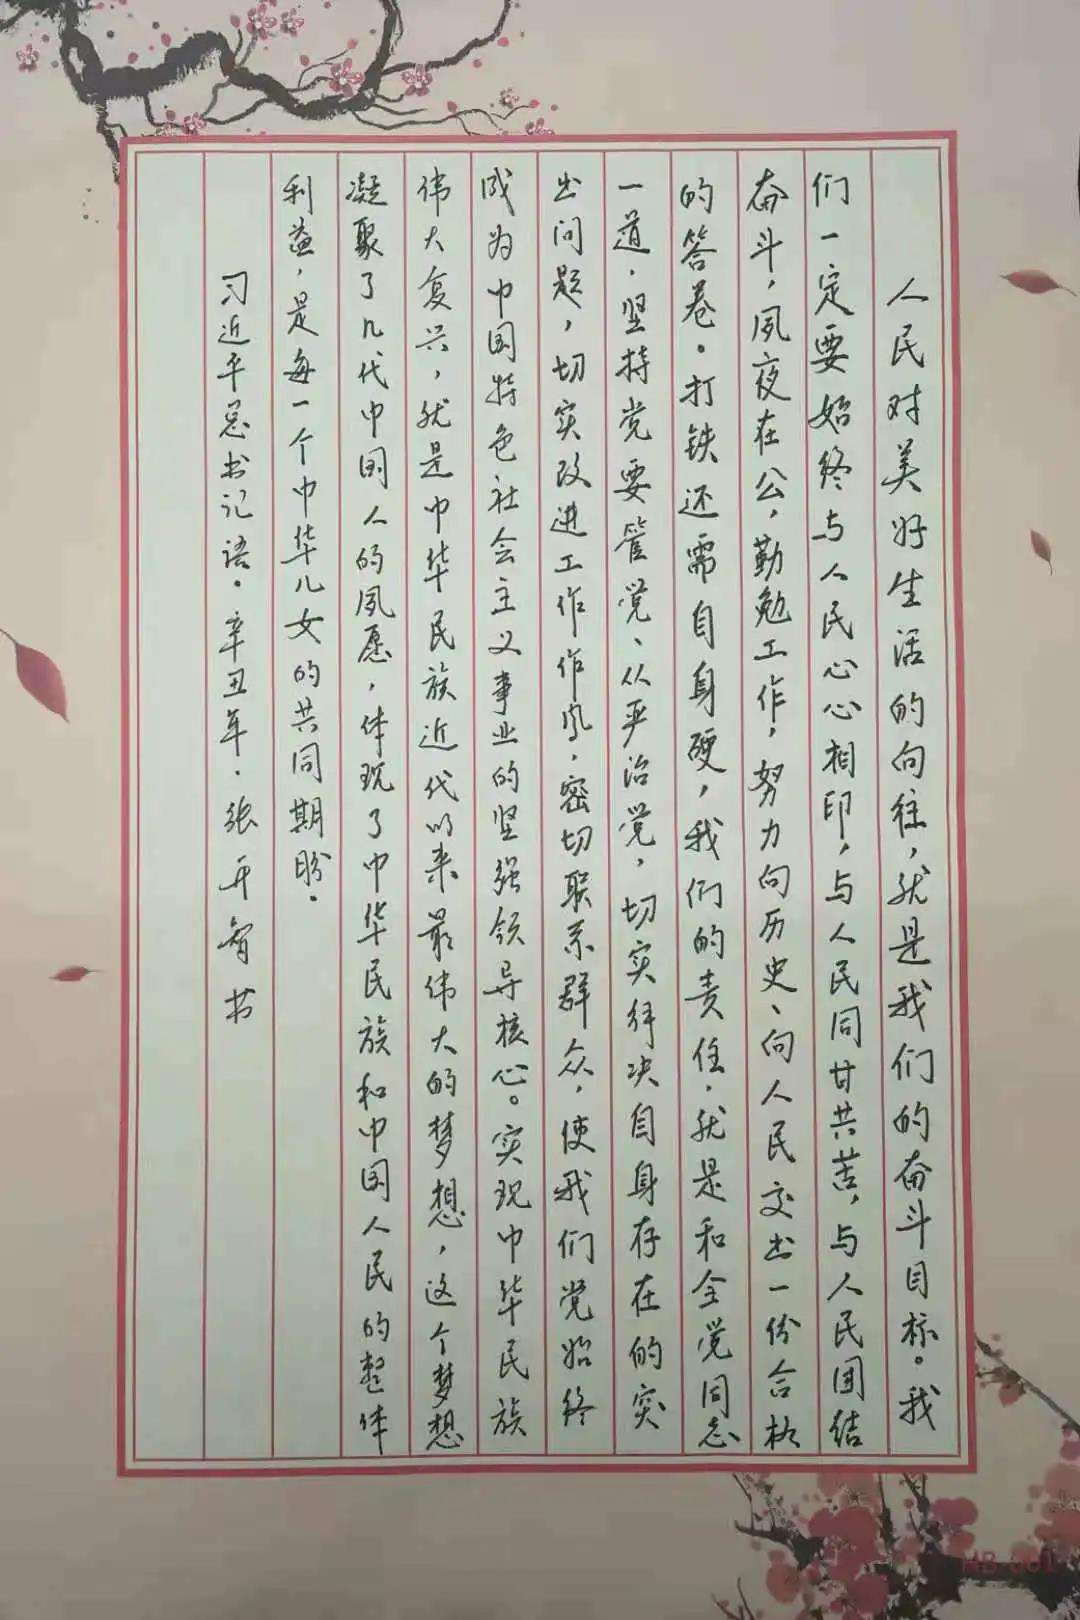 人民对美好生活的向往，就是我们的奋斗目标。我
们一定要始终与人民心心相印，与人民同甘共苦，与人民团结
奋斗，夙夜在公，勤勉工作，努力向历史、向人民交出一份合格
的答卷。打铁还需自身硬，我们的责任，就是和全党同志
一道，坚持党要管党、从严治党，切实解决自身存在的突
出问题，切实改进工作作风，密切联系群众，使我们党始终
成为中国特色社会主义事业的坚强领导核心。实现中华民族
伟大复兴，就是中华民族近代以来最伟大的梦想，这个梦想
凝聚了几代中国人的夙愿，体现了中华民族和中国人民的整体
利益，是每一个中华儿女的共同期盼。
习近平总书记语。辛丑年．张开智书